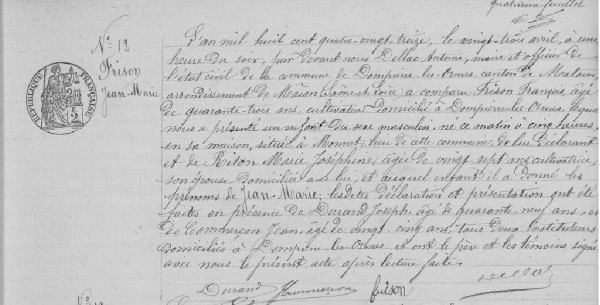 quatrième feuillet
N° 12
Frison
Jean-Marie
RÉPUBLIQUE FRANÇAISE
L'an mil huit cent quatre-vingt-treize, le vingt-trois avril, à une
heure du soir, par devant nous Dellac Antoine, maire et officier de
l'état civil de la commune de Dompierre les Ormes canton de Matour,
arrondissement de Mâcon (Saône et Loire) a comparu Frison François âgé
de quarante trois ans, cultivateur domicilié à Dompierre les Ormes, lequel
nous a présenté un enfant du sexe masculin né ce matin à cinq heures,
en sa maison, située à Monnet, lieu de cette commune de lui déclarant
et de Marie Joséphine, âgée de vingt sept ans cultivatrice,
son épouse domiciliée avec lui, et auquel enfant il a donné les
prénoms de Jean-Marie; lesdites déclaration et présentation ont été
faites en présence de Durand Joseph âgé de quarante neuf ans et
de Commerçon Jean, âgé de vingt cinq ans, tous deux instituteurs
domiciliés à Dompierre-les-Ormes et ont le père et les témoins signé
avec nous le présent acte après lecture faite.
Durand Commerçon frison Dellac